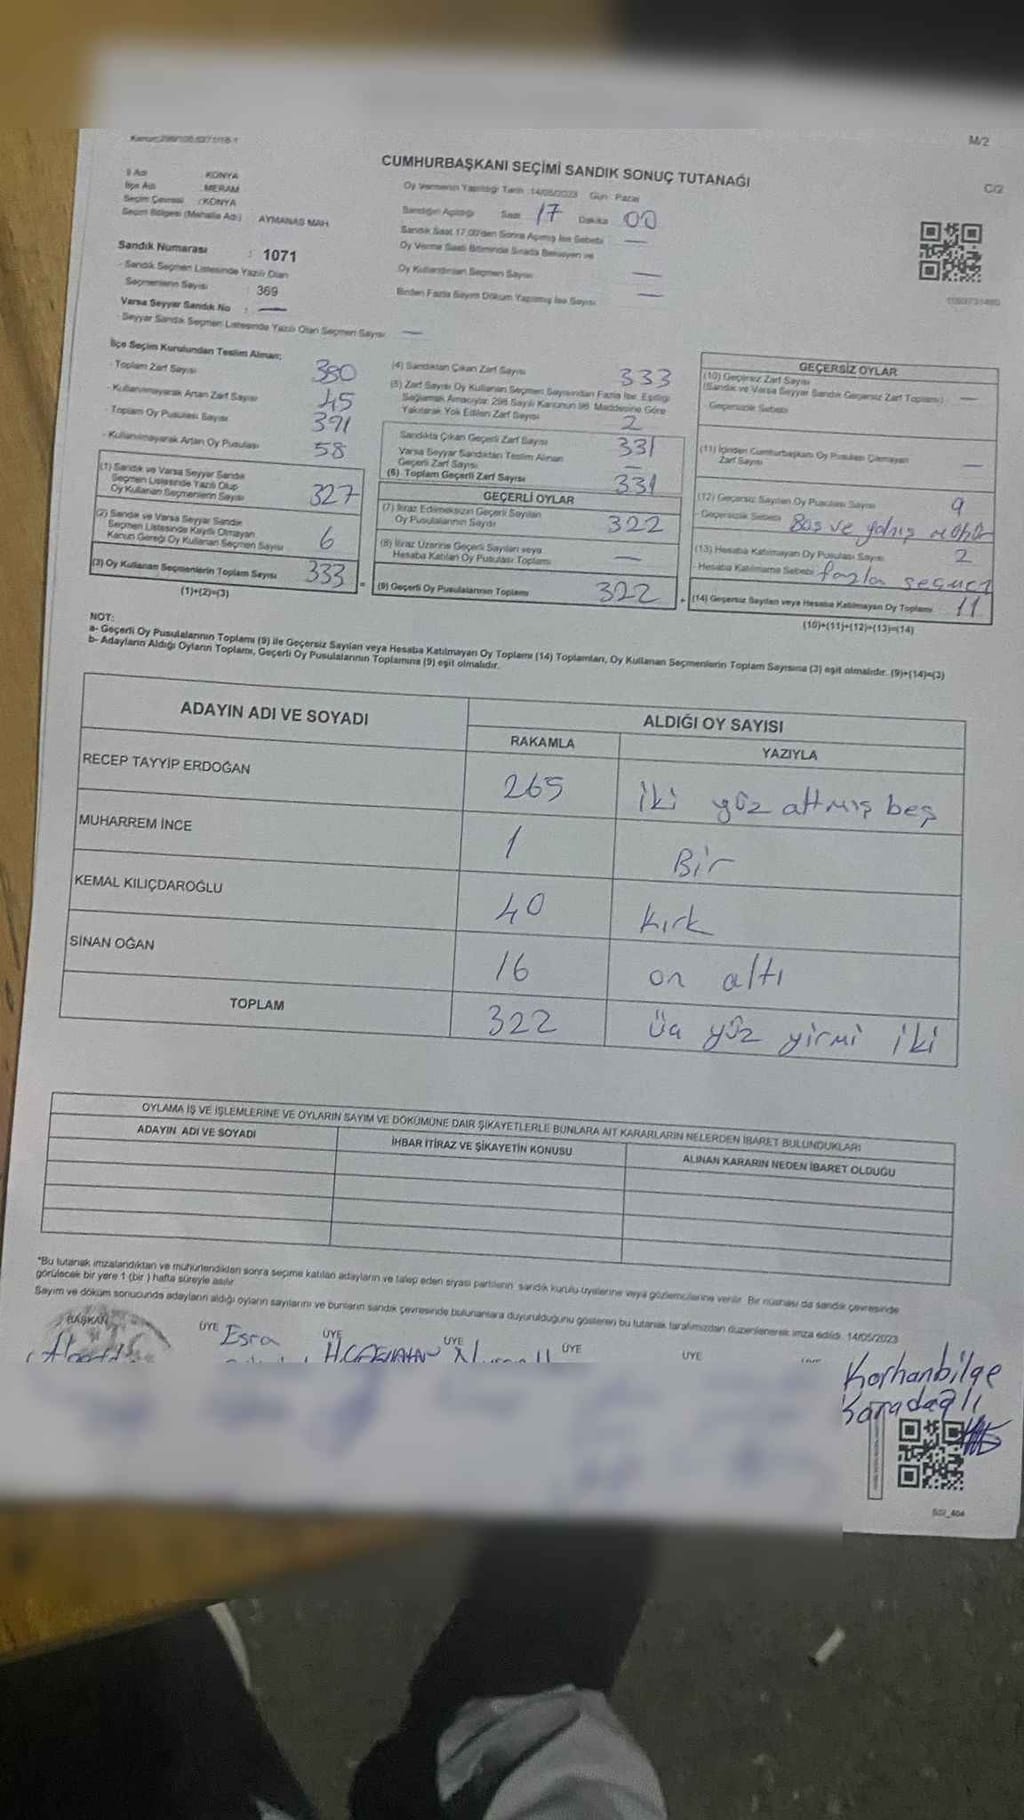 M/2
CUMHURBAŞKANI SEÇİMİ SANDIK SONUÇ TUTANAĞI
C/2
İl Adı KONYA
İlçe Adı : MERAM
Seçim Çevresi : KONYA
Seçim Bölgesi (Mahalle Adı) AYMANAS MAH
Oy Vermenin Yapıldığı Tarih :14/05/2023 Gün : Pazar
Sandığın Açıldığı Saat 17 Dakika 00
Sandık Saat 17.00'den Sonra Açılmış İse Sebebi —
Oy Verme Saati Bitiminde Sırada Bekleyen ve
Oy Kullandırılan Seçmen Sayısı —
Birden Fazla Sayım Döküm Yapılmış İse Sayısı —
Sandık Numarası : 1071
- Sandık Seçmen Listesinde Yazılı Olan
Seçmenlerin Sayısı : 369
Varsa Seyyar Sandık No : —
- Seyyar Sandık Seçmen Listesinde Yazılı Olan Seçmen Sayısı —
İlçe Seçim Kurulundan Teslim Alınan;
- Toplam Zarf Sayısı 380
- Kullanılmayarak Artan Zarf Sayısı 45
- Toplam Oy Pusulası Sayısı 391
- Kullanılmayarak Artan Oy Pusulası 58
(1) Sandık ve Varsa Seyyar Sandık
Seçmen Listesinde Yazılı Olup
Oy Kullanan Seçmenlerin Sayısı 327
(2) Sandık ve Varsa Seyyar Sandık
Seçmen Listesinde Kayıtlı Olmayan
Kanun Gereği Oy Kullanan Seçmen Sayısı 6
(3) Oy Kullanan Seçmenlerin Toplam Sayısı 333 =
(1)+(2)=(3)
(4) Sandıktan Çıkan Zarf Sayısı 333
(5) Zarf Sayısı Oy Kullanan Seçmen Sayısından Fazla İse, Eşitliği
Sağlamak Amacıyla 298 Sayılı Kanunun 98. Maddesine Göre
Yakılarak Yok Edilen Zarf Sayısı 2
Sandıkta Çıkan Geçerli Zarf Sayısı 331
Varsa Seyyar Sandıktan Teslim Alınan
Geçerli Zarf Sayısı —
(6) Toplam Geçerli Zarf Sayısı 331
GEÇERLİ OYLAR
(7) İtiraz Edilmeksizin Geçerli Sayılan
Oy Pusulalarının Sayısı 322
(8) İtiraz Üzerine Geçerli Sayılan veya
Hesaba Katılan Oy Pusulası Toplamı —
(9) Geçerli Oy Pusulalarının Toplamı 322 +
GEÇERSİZ OYLAR
(10) Geçersiz Zarf Sayısı
(Sandık ve Varsa Seyyar Sandık Geçersiz Zarf Toplamı) —
- Geçersizlik Sebebi
(11) İçinden Cumhurbaşkanı Oy Pusulası Çıkmayan
Zarf Sayısı —
(12) Geçersiz Sayılan Oy Pusulası Sayısı 9
- Geçersizlik Sebebi Boş ve yalnış mühür
(13) Hesaba Katılmayan Oy Pusulası Sayısı 2
- Hesaba Katılmama Sebebi fazla seçmen
(14) Geçersiz Sayılan veya Hesaba Katılmayan Oy Toplamı 11
(10)+(11)+(12)+(13)=(14)
NOT:
a- Geçerli Oy Pusulalarının Toplamı (9) ile Geçersiz Sayılan veya Hesaba Katılmayan Oy Toplamı (14) Toplamları, Oy Kullanan Seçmenlerin Toplam Sayısına (3) eşit olmalıdır. (9)+(14)=(3)
b- Adayların Aldığı Oyların Toplamı, Geçerli Oy Pusulalarının Toplamına (9) eşit olmalıdır.
ADAYIN ADI VE SOYADI
ALDIĞI OY SAYISI
RAKAMLA YAZIYLA
RECEP TAYYİP ERDOĞAN 265 iki yüz altmış beş
MUHARREM İNCE 1 Bir
KEMAL KILIÇDAROĞLU 40 kırk
SİNAN OĞAN 16 on altı
TOPLAM 322 üç yüz yirmi iki
OYLAMA İŞ VE İŞLEMLERİNE VE OYLARIN SAYIM VE DÖKÜMÜNE DAİR ŞİKAYETLERLE BUNLARA AİT KARARLARIN NELERDEN İBARET BULUNDUKLARI
ADAYIN ADI VE SOYADI İHBAR İTİRAZ VE ŞİKAYETİN KONUSU ALINAN KARARIN NEDEN İBARET OLDUĞU
*Bu tutanak imzalandıktan ve mühürlendikten sonra seçime katılan adayların ve talep eden siyasi partilerin sandık kurulu üyelerine veya gözlemcilerine verilir. Bir nüshası da sandık çevresinde
görülecek bir yere 1 (bir ) hafta süreyle asılır.
Sayım ve döküm sonucunda adayların aldığı oyların sayılarını ve bunların sandık çevresinde bulunanlara duyurulduğunu gösteren bu tutanak tarafımızdan düzenlenerek imza edildi. 14/05/2023
BAŞKAN ÜYE ÜYE ÜYE ÜYE ÜYE
Esra
Korhanbilge
Karadağlı